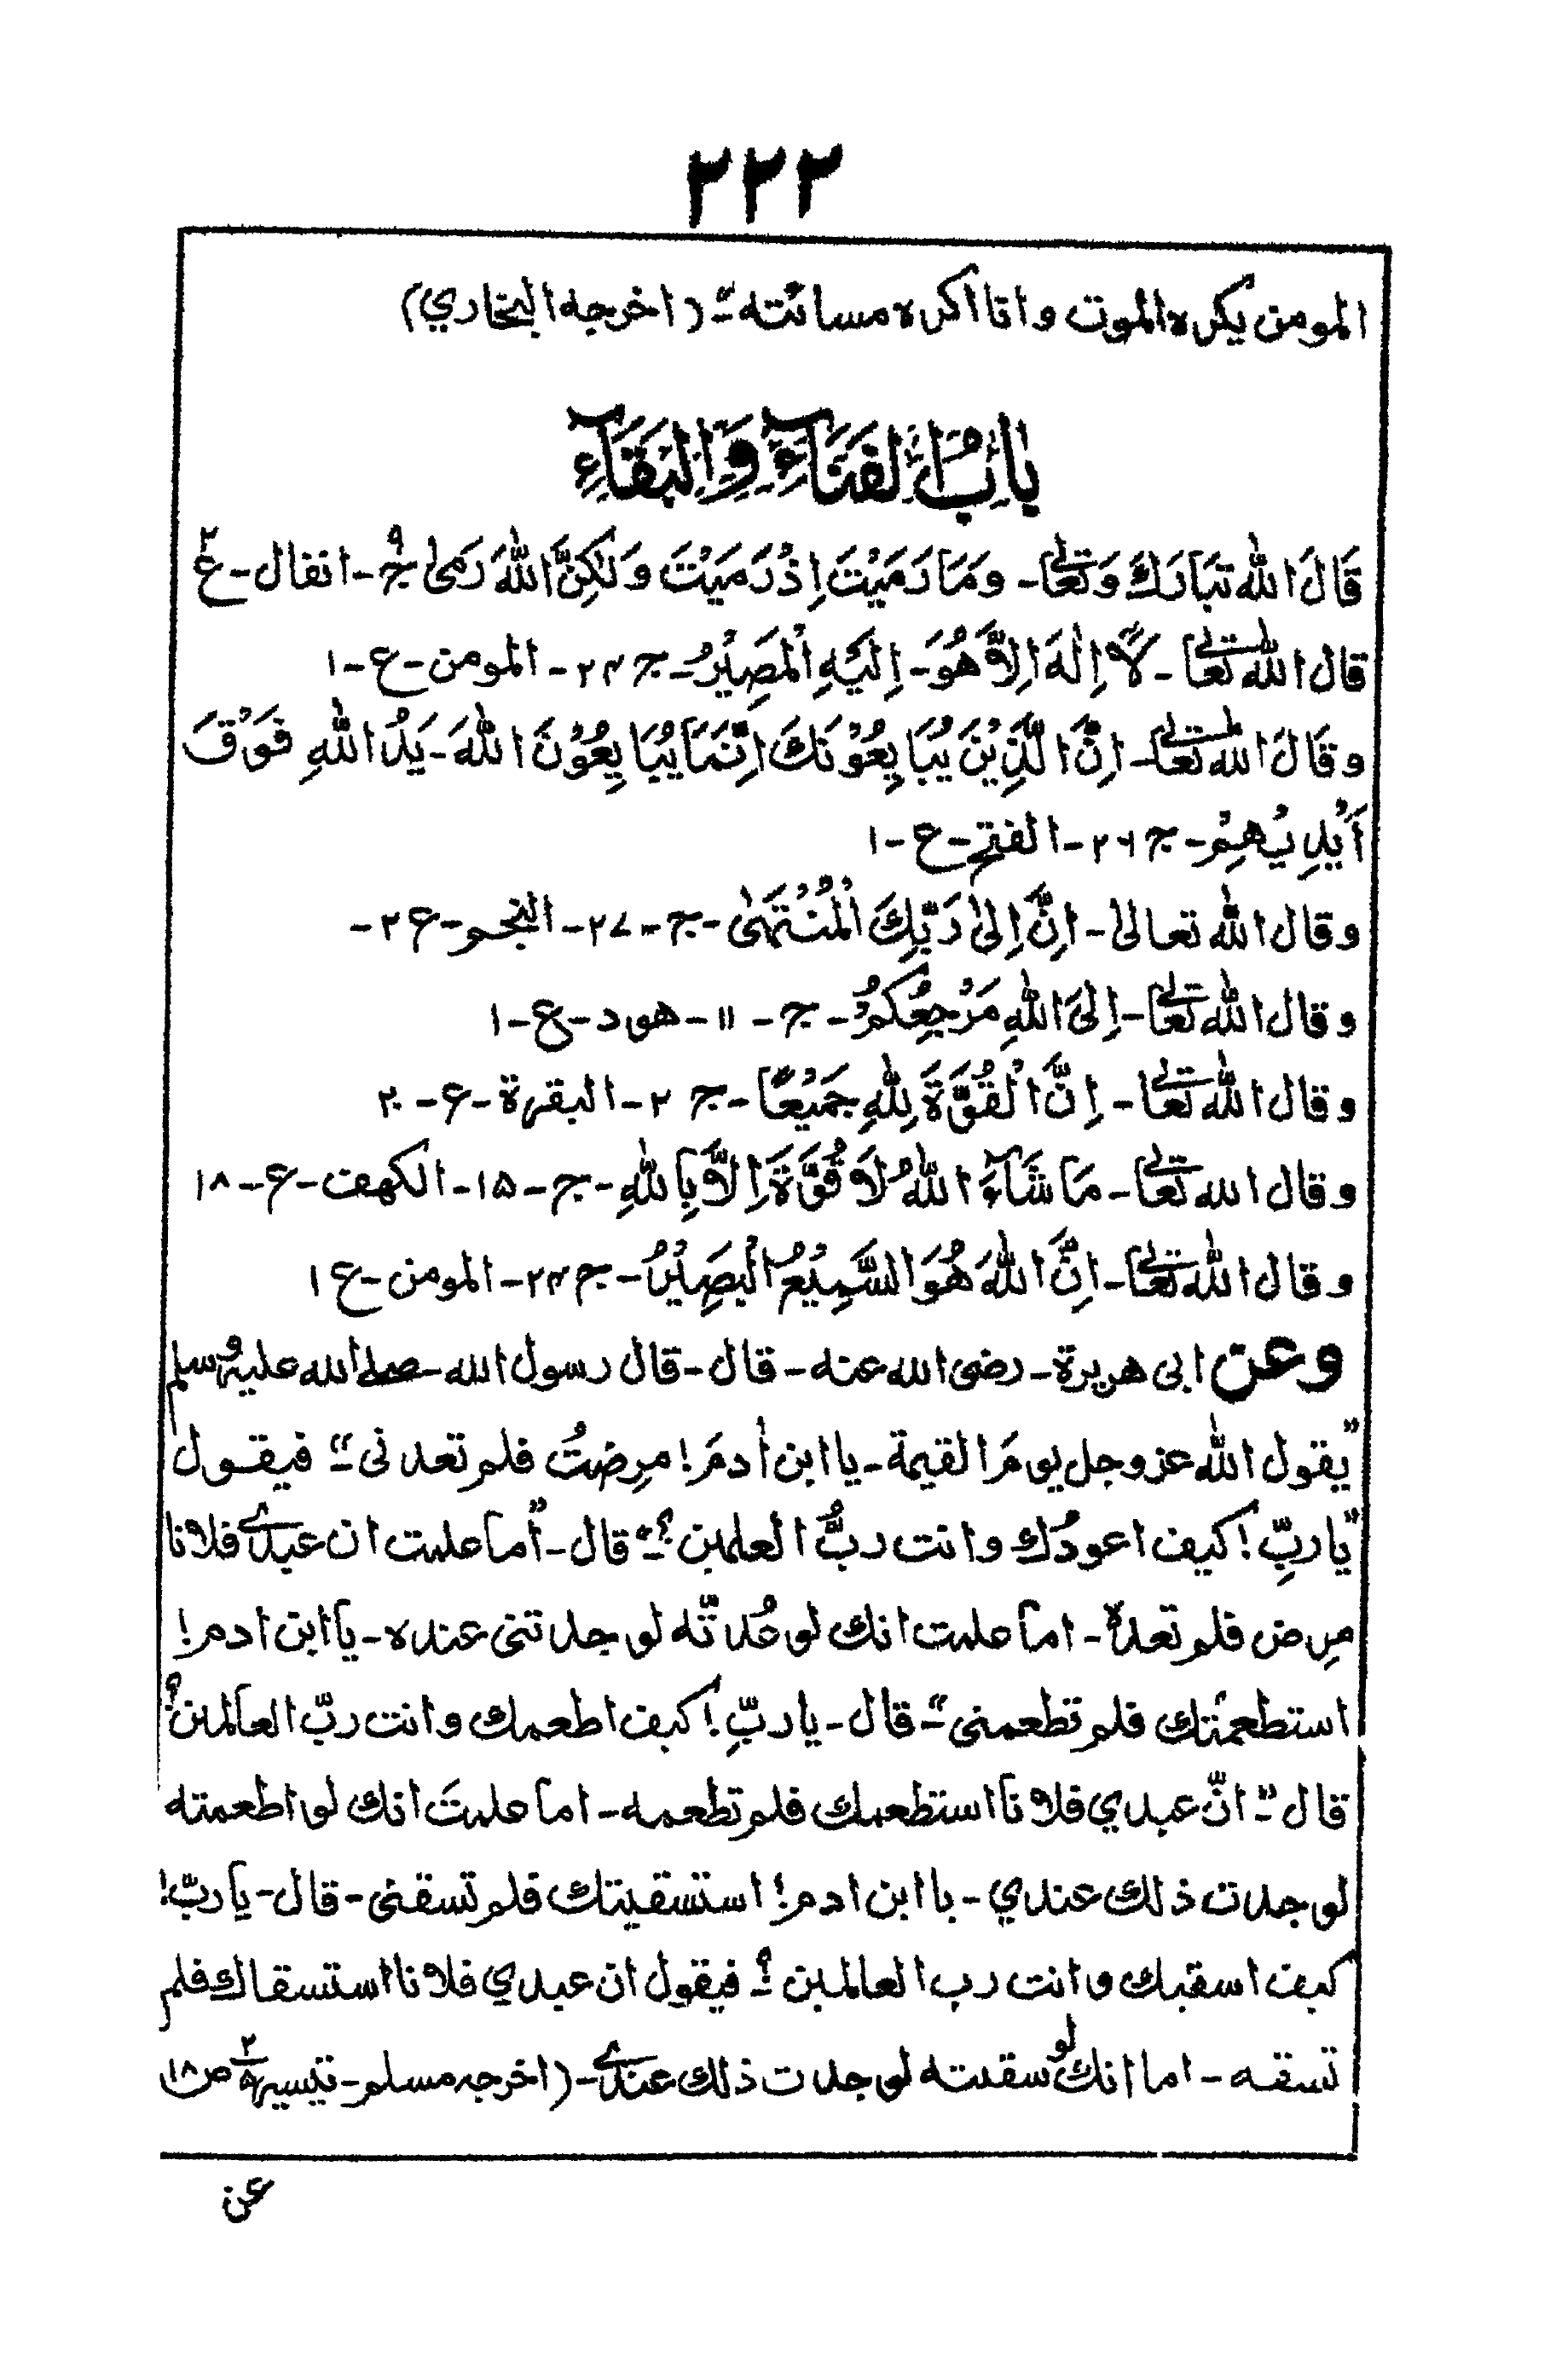 ٢٢٢
المومن يكره الموت وانا اكره مسائته"- (اخرجه البخاري)
بَابُ الْفَنَآءِ وَالْبَقَآءِ
قَالَ اللهُ تَبَارَكَ وَتَعٰلى- وَمَا رَمَيْتَ اِذْ رَمَيْتَ وَلٰكِنَّ اللهَ رَمٰى ج ٩- انفال- ع ٢
قال الله تعالى- لَآ اِلٰهَ اِلَّا هُوَ- اِلَيْهِ الْمَصِيْرُ- ج ٢٤- المومن- ع- ١
وقَالَ الله تعالى- اِنَّ الَّذِيْنَ يُبَايِعُوْنَكَ اِنَّمَا يُبَايِعُوْنَ اللهَ- يَدُ اللهِ فَوْقَ
اَيْدِيْهِمْ- ج ٢٦- الفتح- ع- ١
وقال الله تعالىٰ- اِنَّ اِلىٰ رَبِّكَ الْمُنْتَهٰى- ج- ٢٧- النجم- ع ٢-
وقال الله تعالى- اِلَى اللهِ مَرْجِعُكُمْ- ج- ١١- هود- ع- ١
وقال الله تعالى- اِنَّ الْقُوَّةَ لِلّٰهِ جَمِيْعًا- ج ٢- البقرة- ع- ٢٠
وقال الله تعالى- مَا شَآءَ اللهُ لَا قُوَّةَ اِلَّا بِاللهِ- ج- ١٥- الكهف- ع- ١٨
وقال الله تعالى- اِنَّ اللهَ هُوَ السَّمِيْعُ الْبَصِيْرُ- ج ٢٤- المومن- ع ١
وعن ابى هريرة- رضى الله عنه- قال- قال رسول الله- صلى الله عليه وسلم
"يقول الله عز وجل يومَ القيمة- يا ابن اٰدمَ! مرِضتُ فلم تعدنى"- فيقول
"يا ربِّ! كيف اعودُك وانت ربُّ العلمين؟"- قال- "اَما علمت ان عبدى فلانا
مرِض فلم تعدهٗ- اما علمت انك لو عُدتَّه لوجدتنى عنده- يا ابن ادم!
استطعمتك فلم تطعمنى"- قال- يا ربِّ! كيف اطعمك وانت ربّ العالمين؟
قال"- انّ عبدي فلانا استطعمك فلم تطعمه- اما علمتَ انك لو اطعمته
لوجدت ذلك عندي- يا ابن ادم! استسقيتك فلم تسقنى- قال- يا ربّ!
كيف اسقيك وانت رب العالمين؟- فيقول ان عبدي فلانا استسقاك فلم
تسقه- اما انك لو سقيته لوجدت ذلك عندى- (اخرجه مسلم- تيسير ٢/٩ ص ١٨
عن